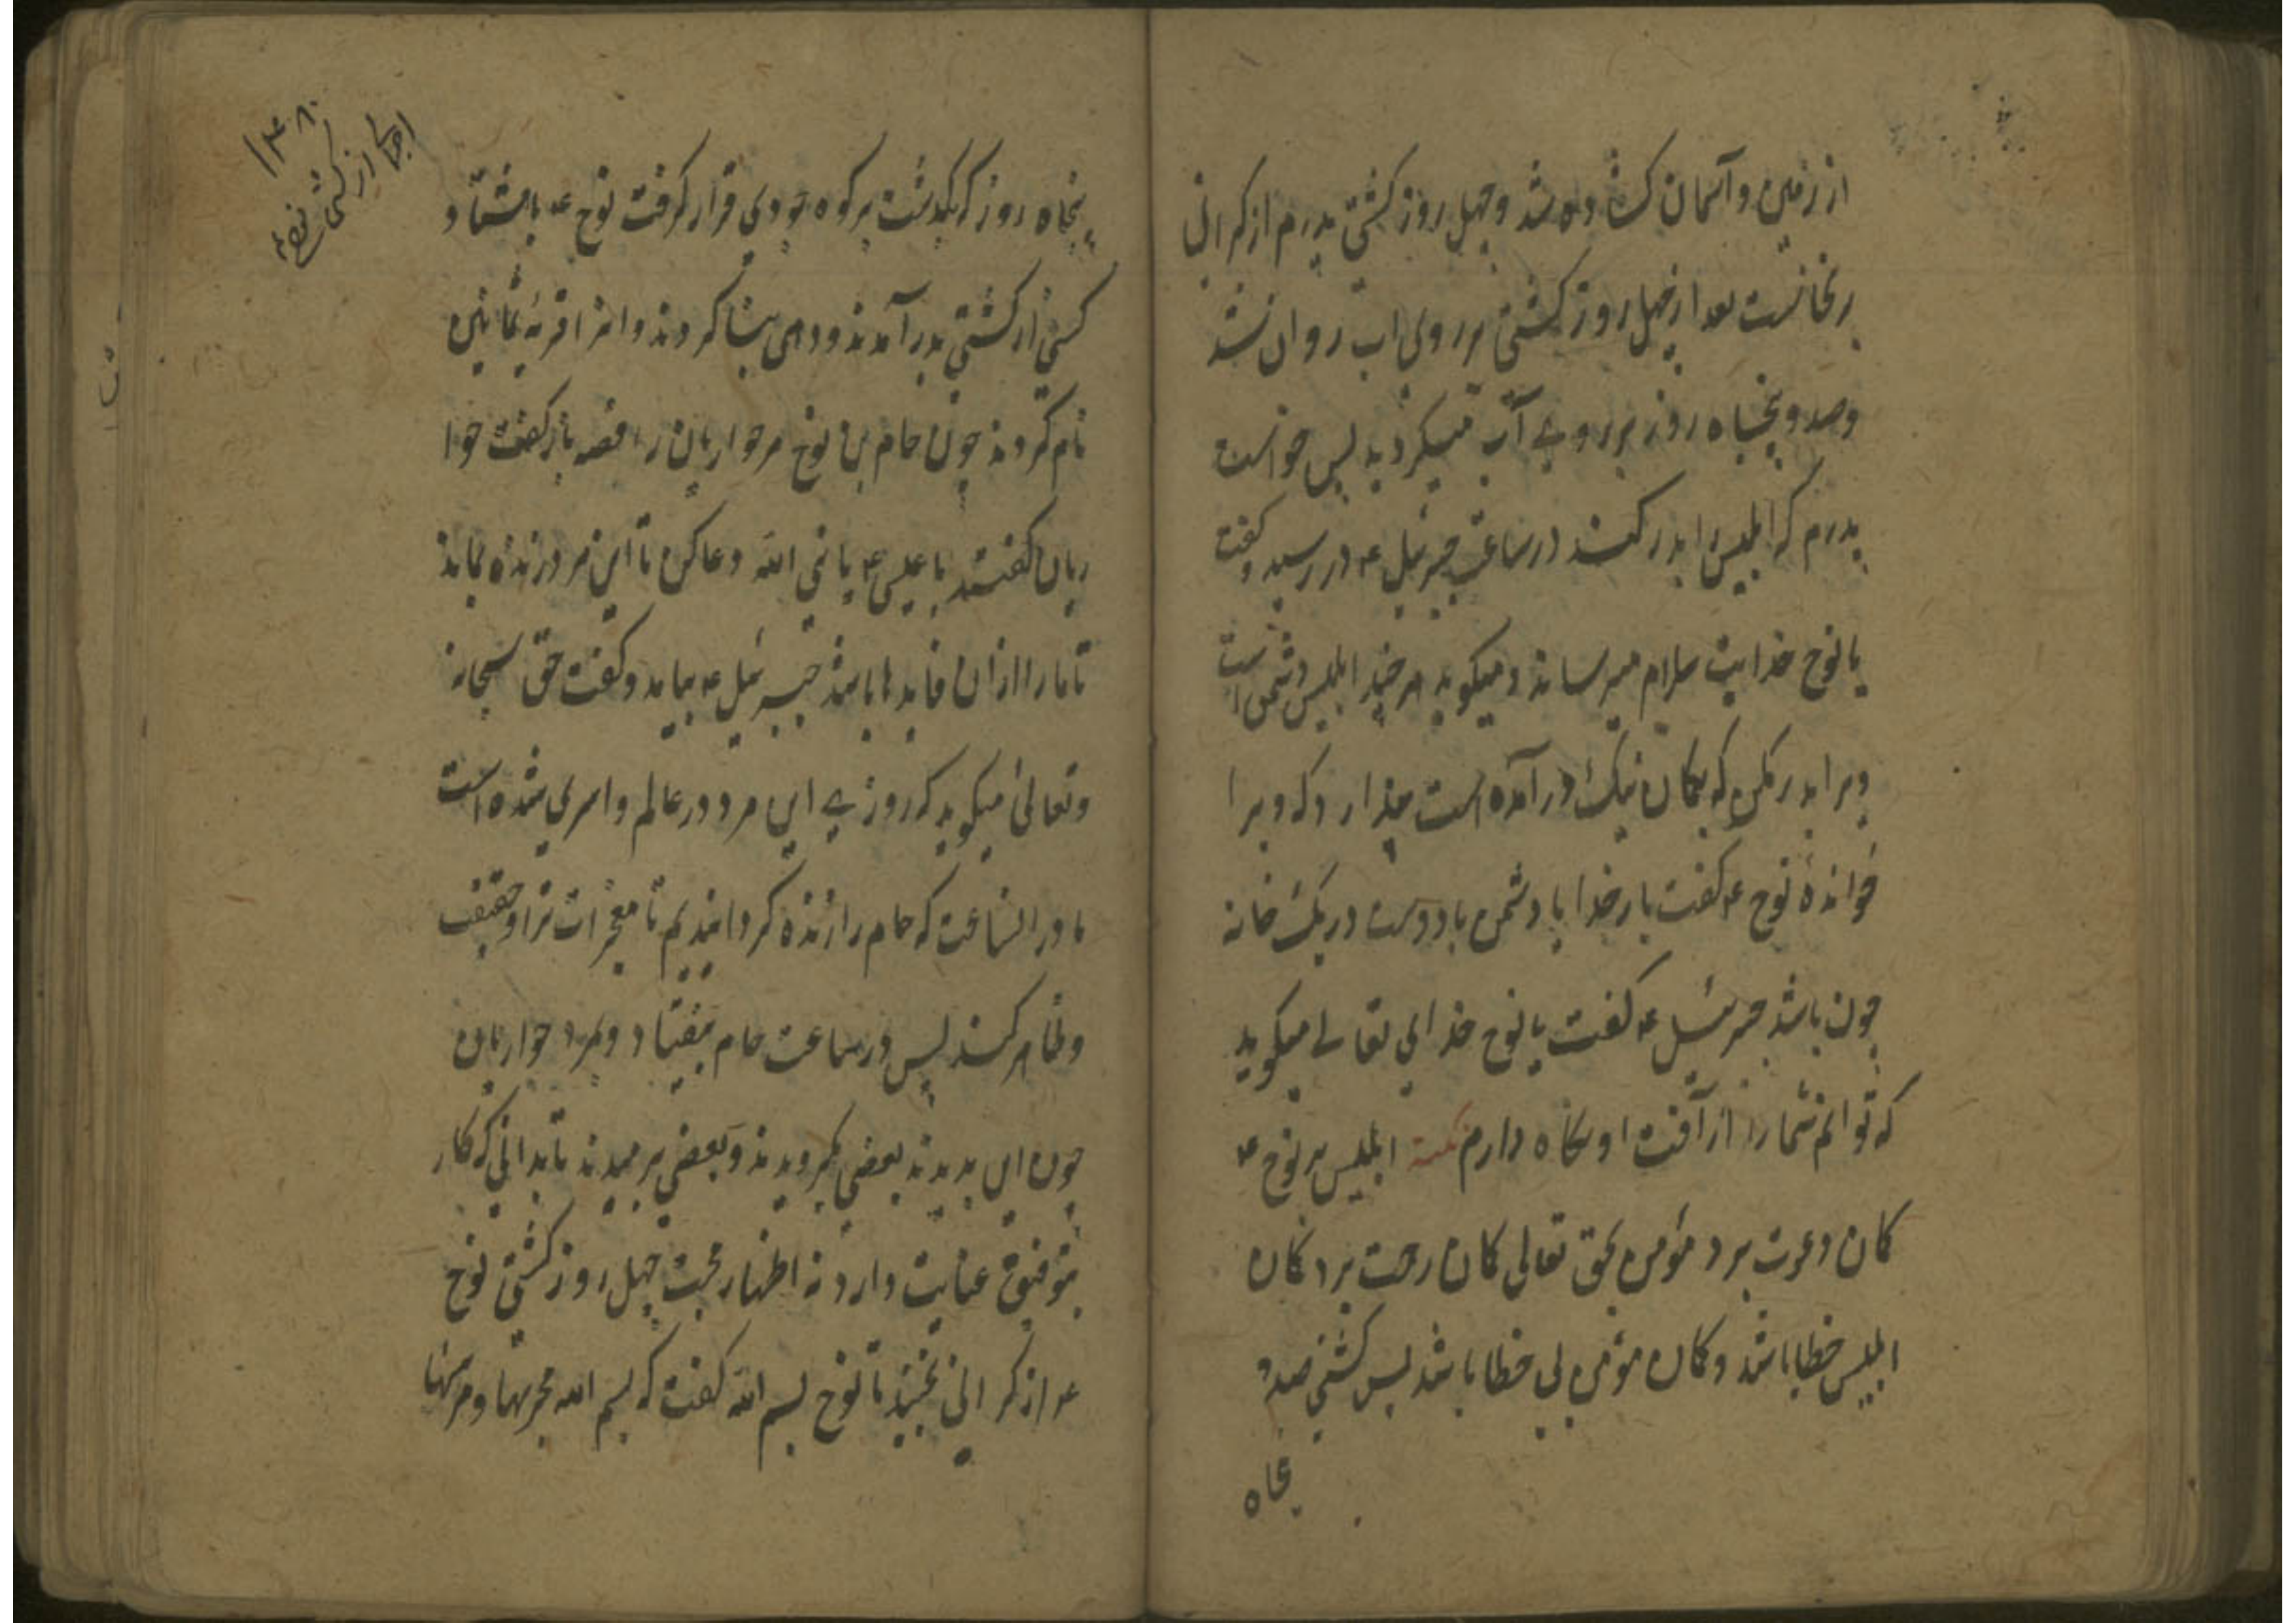 از زمین و آسمان کشاده شد و چهل روز کشتی پدرم از کرانی
برنخاست بعد از چهل روز کشتی بر روی اب روان شد
و صد و پنجاه روز بر روی آب میکردید پس خواست
پدرم که ابلیس را بدر کند در ساعت جبرئیل ع در رسید و کفت
یا نوح خدایت سلام میرساند و میکوید هر چند ابلیس دشمن است
ویرا بدر مکن که بکمان نیک در آمده است مپندار که ویرا
خوانده نوح ع کفت بار خدایا دشمن با دوست در یک خانه
چون باشد جبرئیل ع کفت یا نوح خدای تعالی میکوید
که توانم شما را از آفت او نکاه دارم نکته ابلیس بر نوح ع
کمان دعوت برد مؤمن بحق تعالی کمان رحمت برد کمان
ابلیس خطا باشد و کمان مؤمن بی خطا باشد پس کشتی صد و
پنجاه
۱۴۸
از کشتی نوح
پنجاه روز که بکذشت بر کوه جودی قرار کرفت نوح ع با هشتاد
کس از کشتی بدر آمدند و دهی بنا کردند و انرا قریهٔ ثمانین
نام کردند چون حام بن نوح مر حواریان را قصه باز کفت حوا
ریان کفتند با عیسی ع یا نبی الله دعا کن تا این مرد زنده بماند
تا ما را از ان فایدها باشد جبرئیل ع بیامد و کفت حق سبحانه
و تعالی میکوید که روزی این مرد در عالم واسری شده است
ما در انساعت که حام را زنده کردانیدیم تا معجزات ترا و حقیقت
و ظاهر کند پس در ساعت حام بیفتاد و بمرد حواریان
چون این بدیدند بعضی بکرویدند و بعضی برمیدند تا بدانی که کار
بتوفیق عنایت دارد نه اظهار حجت چهل روز کشتی نوح
ع از کرانی نجنبید تا نوح بسم الله کفت که بسم الله مجریها و مرسیها